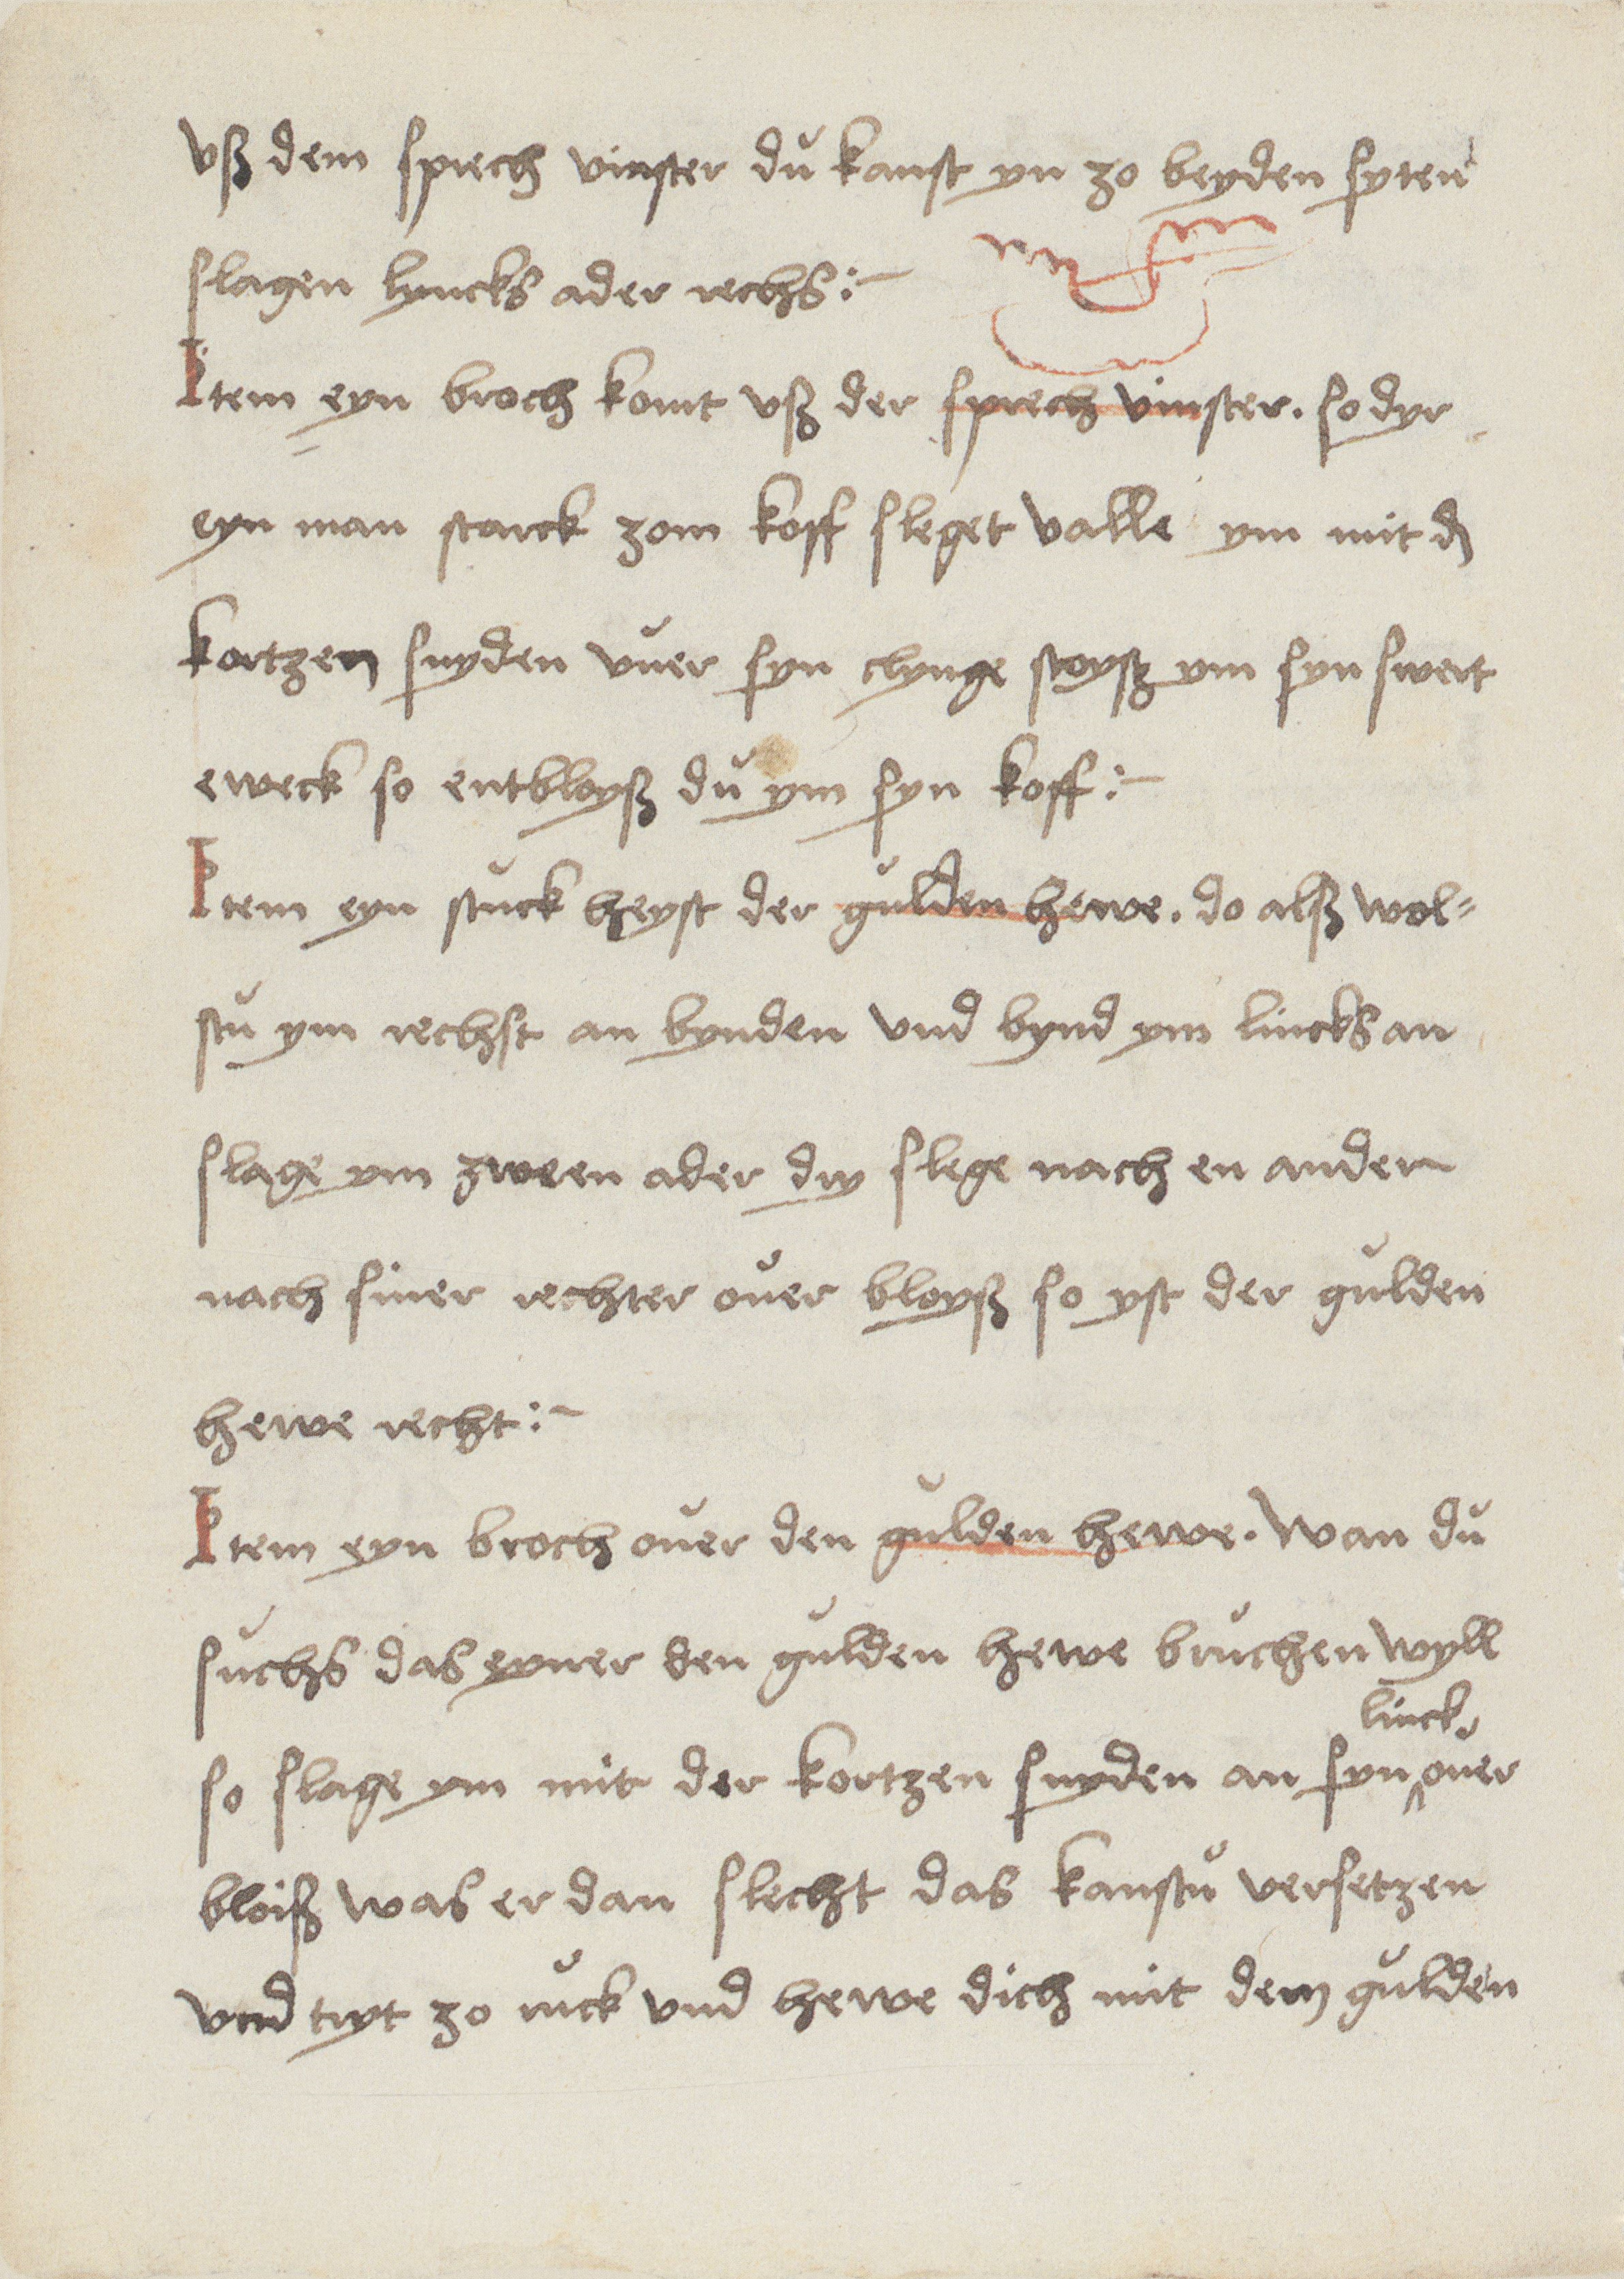 vß dem sprech vinster du kanst yn zo beyden syten
slagen lyncks ader rechs :~
Item eyn broch komt vß der sprech vinster . so dyr
eyn man starck zom koff sleget valle ym mit d̕
kortzen snyden vuer syn clynge stoysz ym syn swert
eweck so entbloyß du ym syn koff :~
Item eyn stuck heyst der gulden hewe . do alß wol=
stu ym rechst an bynden vnd bynd ym lincks an
slage ym zween ader dry slege nach en ander
nach siner rechter ouer bloyß so yst der gulden
hewe recht :~
Item eyn broch ouer den gulden hewe . Wan du
suchs das eyner den gulden hewe bruchen wyll
linck
so slage ym mit der kortzen snyden an syn ^ ouer
bloiß was er dan slecht das kanstu versetzen
vnd tryt zo ruck vnd hewe dich mit dem gulden